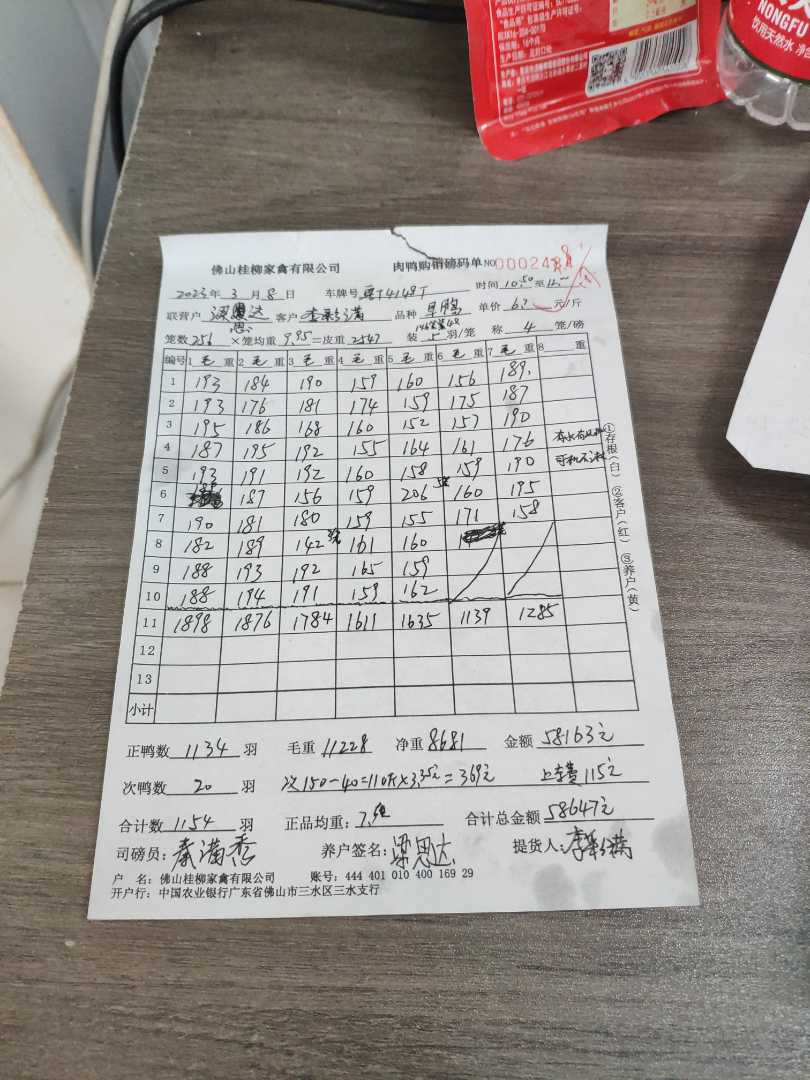 NONGFU
饮用天然水
保质期：16个月
生产日期：见封口处
佛山桂柳家禽有限公司 肉鸭购销磅码单 NO 000248
2023年 3月 8日 车牌号 时间 10:50 至
联营户 达 客户 李彩满 品种 单价 元/斤
笼数 256 ×笼均重 9.95 =皮重 2547 装 5 羽/笼 称 4 笼/磅
编号 1 毛 重 2 毛 重 3 毛 重 4 毛 重 5 毛 重 6 毛 重 7 毛 重 8 重
1 193 184 190 159 160 156 189
2 193 176 181 174 159 175 187
3 195 186 168 160 152 157 190
4 187 195 192 155 164 161 176
5 193 191 192 160 158 159 190
6 187 156 159 206 160 195
7 190 181 180 159 155 171 158
8 182 189 142 161 160
9 188 193 192 165 159
10 188 194 191 159 162
11 1898 1876 1784 1611 1635 1139 1285
12
13
小计
①存根(白) ②客户(红) ③养户(黄)
正鸭数 1134 羽 毛重 11228 净重 8681 金额 58163元
次鸭数 20 羽 次150-40=110斤×3.35元=369元 上车费115元
合计数 1154 羽 正品均重: 7. 合计总金额 58647元
司磅员: 秦满秀 养户签名: 梁思达 提货人: 李彩满
户 名: 佛山桂柳家禽有限公司 账号: 444 401 010 400 169 29
开户行: 中国农业银行广东省佛山市三水区三水支行